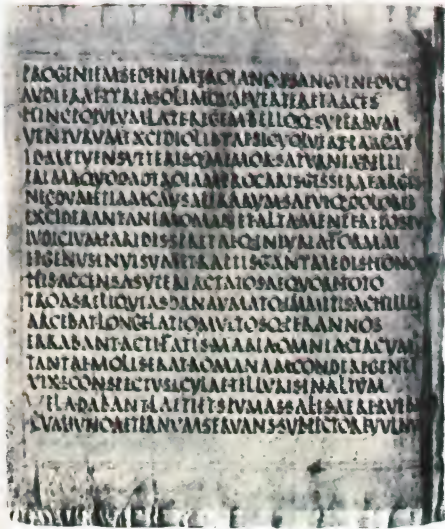 PROGENIEMSEDENIMTROIANOASANGVINEDVCI
AVDIERATTYRIASOLIMQVAEVERTERETARCES
HINCPOPVLVMLATEREGEMBELLOQ·SVPERBVM
VENTVRVMEXCIDIOLIBYAESICVOLVEREPARCAS
IDMETVENSVETERISQ·MEMORSATVRNIABELLI
PRIMAQVODADTROIAMPROCARISGESSERATARGIS
NECDVMETIAMCAVSAEIRARVMSAEVIQ·DOLORES
EXCIDERANTANIMOMANETALTAMENTEREPOSTV
IVDICIVMPARIDISSPRETAEQ·INIVRIAFORMAE
ETGENVSINVISVMETRAPTISGANYMEDISHONO
HISACCENSASVPERIACTATOSAEQVORETOTO
TROASRELIQVIASDANAVMATQ·IMMITISACHILLIS
ARCEBATLONGELATIOMVLTOSQ·PERANNOS
ERRABANTACTIFATISMARIAOMNIACIRCVM
TANTAEMOLISERATROMANAMCONDEREGENTE
VIXECONSPECTVSICVLAETELLVRISINALTVM
VELADABANTLAETIETSPVMASSALISAERERVEB
CVMIVNOAETERNVMSERVANSSVBPECTOREVVLNV